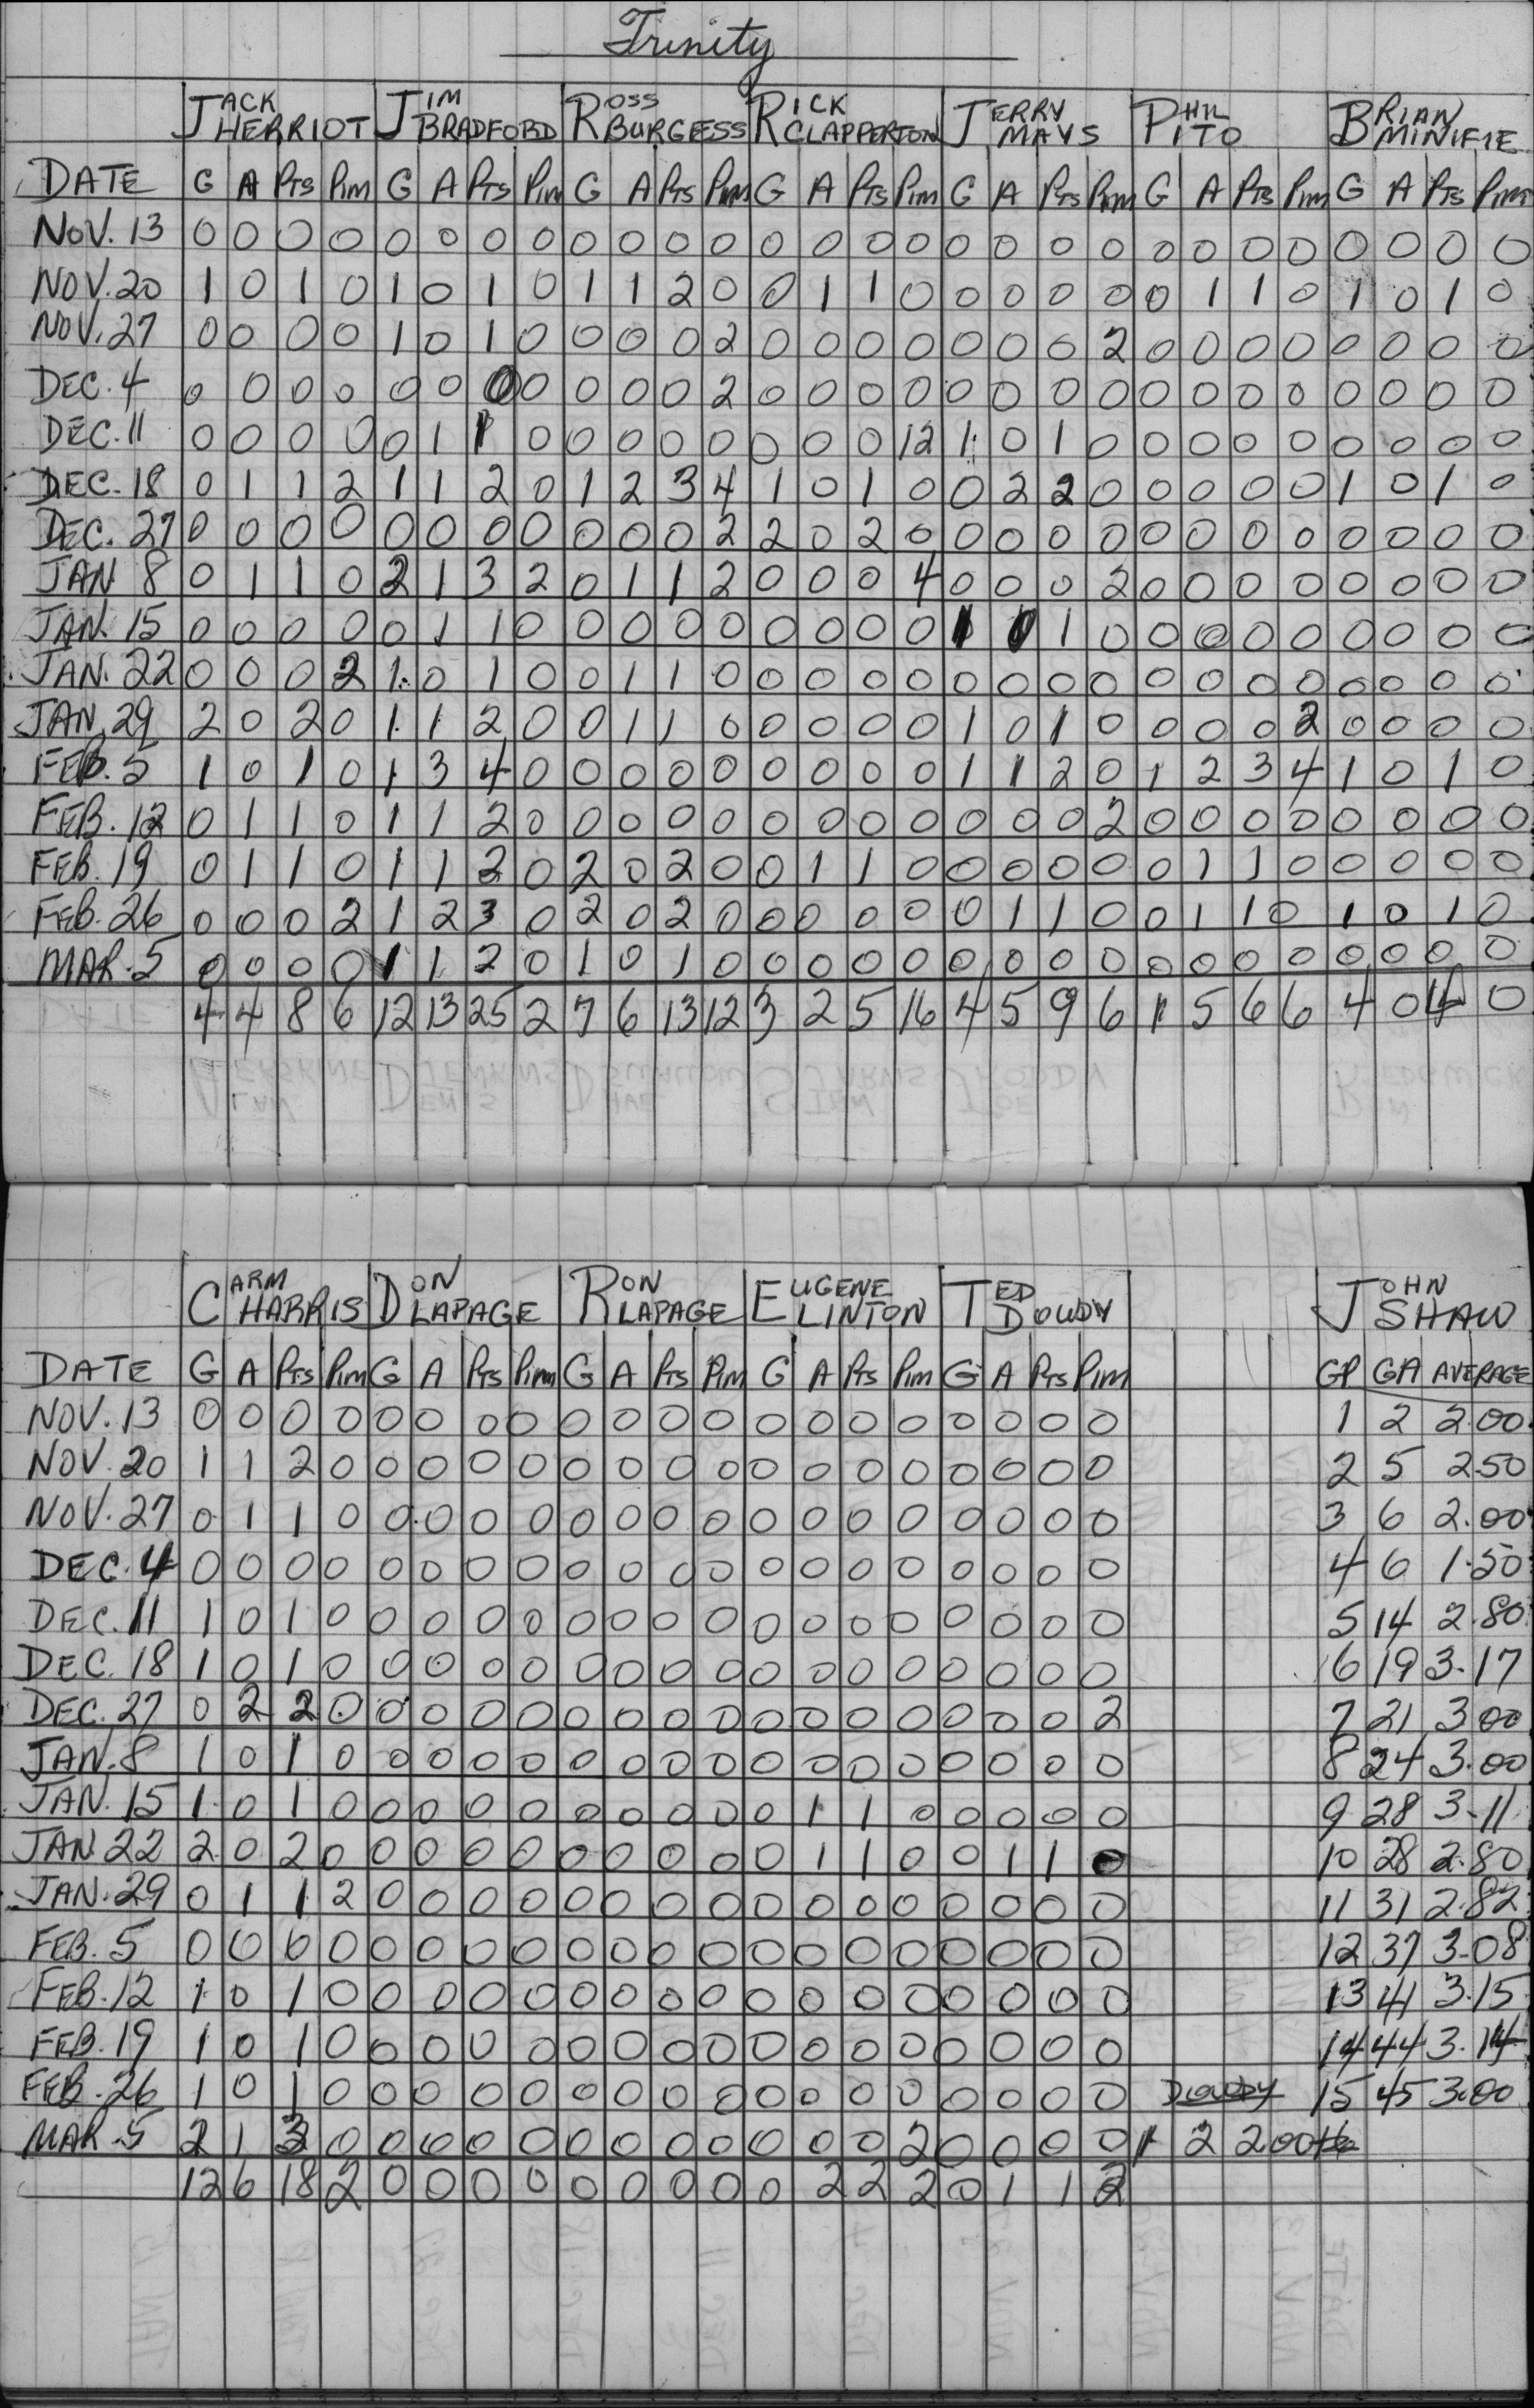 Trinity
JACK HERRIOT JIM BRADFORD ROSS BURGESS RICK CLAPPERTON JERRY MAYS PHIL PITO BRIAN MINIFIE
DATE G A Pts Pim G A Pts Pim G A Pts Pim G A Pts Pim G A Pts Pim G A Pts Pim G A Pts Pim
NOV. 13 0 0 0 0 0 0 0 0 0 0 0 0 0 0 0 0 0 0 0 0 0 0 0 0 0 0 0 0
NOV. 20 1 0 1 0 1 0 1 0 1 1 2 0 0 1 1 0 0 0 0 0 0 1 1 0 1 0 1 0
NOV. 27 0 0 0 0 1 0 1 0 0 0 0 2 0 0 0 0 0 0 0 2 0 0 0 0 0 0 0 0
DEC. 4 0 0 0 0 0 0 0 0 0 0 0 2 0 0 0 0 0 0 0 0 0 0 0 0 0 0 0 0
DEC. 11 0 0 0 0 0 1 1 0 0 0 0 0 0 0 0 12 1 0 1 0 0 0 0 0 0 0 0 0
DEC. 18 0 1 1 2 1 1 2 0 1 2 3 4 1 0 1 0 0 2 2 0 0 0 0 0 1 0 1 0
DEC. 27 0 0 0 0 0 0 0 0 0 0 0 2 2 0 2 0 0 0 0 0 0 0 0 0 0 0 0 0
JAN 8 0 1 1 0 2 1 3 2 0 1 1 2 0 0 0 4 0 0 0 2 0 0 0 0 0 0 0 0
JAN. 15 0 0 0 0 0 1 1 0 0 0 0 0 0 0 0 0 1 0 1 0 0 0 0 0 0 0 0 0
JAN. 22 0 0 0 2 1 0 1 0 0 1 1 0 0 0 0 0 0 0 0 0 0 0 0 0 0 0 0 0
JAN. 29 2 0 2 0 1 1 2 0 0 1 1 0 0 0 0 0 1 0 1 0 0 0 0 2 0 0 0 0
FEB. 5 1 0 1 0 1 3 4 0 0 0 0 0 0 0 0 0 1 1 2 0 1 2 3 4 1 0 1 0
FEB. 12 0 1 1 0 1 1 2 0 0 0 0 0 0 0 0 0 0 0 0 2 0 0 0 0 0 0 0 0
FEB. 19 0 1 1 0 1 1 2 0 2 0 2 0 0 1 1 0 0 0 0 0 0 1 1 0 0 0 0 0
FEB. 26 0 0 0 2 1 2 3 0 2 0 2 0 0 0 0 0 0 1 1 0 0 1 1 0 1 0 1 0
MAR. 5 0 0 0 0 1 1 2 0 1 0 1 0 0 0 0 0 0 0 0 0 0 0 0 0 0 0 0 0
4 4 8 6 12 13 25 2 7 6 13 12 3 2 5 16 4 5 9 6 1 5 6 6 4 0 4 0
CARM HARRIS DON LAPAGE RON LAPAGE EUGENE LINTON TED DOWDY JOHN SHAW
DATE G A Pts Pim G A Pts Pim G A Pts Pim G A Pts Pim G A Pts Pim GP GA AVERAGE
NOV. 13 0 0 0 0 0 0 0 0 0 0 0 0 0 0 0 0 0 0 0 0 1 2 2.00
NOV. 20 1 1 2 0 0 0 0 0 0 0 0 0 0 0 0 0 0 0 0 0 2 5 2.50
NOV. 27 0 1 1 0 0 0 0 0 0 0 0 0 0 0 0 0 0 0 0 0 3 6 2.00
DEC. 4 0 0 0 0 0 0 0 0 0 0 0 0 0 0 0 0 0 0 0 0 4 6 1.50
DEC. 11 1 0 1 0 0 0 0 0 0 0 0 0 0 0 0 0 0 0 0 0 5 14 2.80
DEC. 18 1 0 1 0 0 0 0 0 0 0 0 0 0 0 0 0 0 0 0 0 6 19 3.17
DEC. 27 0 2 2 0 0 0 0 0 0 0 0 0 0 0 0 0 0 0 0 2 7 21 3.00
JAN. 8 1 0 1 0 0 0 0 0 0 0 0 0 0 0 0 0 0 0 0 0 8 24 3.00
JAN. 15 1 0 1 0 0 0 0 0 0 0 0 0 0 1 1 0 0 0 0 0 9 28 3.11
JAN 22 2 0 2 0 0 0 0 0 0 0 0 0 0 1 1 0 0 1 1 0 10 28 2.80
JAN. 29 0 1 1 2 0 0 0 0 0 0 0 0 0 0 0 0 0 0 0 0 11 31 2.82
FEB. 5 0 0 0 0 0 0 0 0 0 0 0 0 0 0 0 0 0 0 0 0 12 37 3.08
FEB. 12 1 0 1 0 0 0 0 0 0 0 0 0 0 0 0 0 0 0 0 0 13 41 3.15
FEB. 19 1 0 1 0 0 0 0 0 0 0 0 0 0 0 0 0 0 0 0 0 14 44 3.14
FEB. 26 1 0 1 0 0 0 0 0 0 0 0 0 0 0 0 0 0 0 0 0 DOWDY 15 45 3.00
MAR. 5 2 1 3 0 0 0 0 0 0 0 0 0 0 0 0 2 0 0 0 0 1 2 2.00
12 6 18 2 0 0 0 0 0 0 0 0 0 2 2 2 0 1 1 2